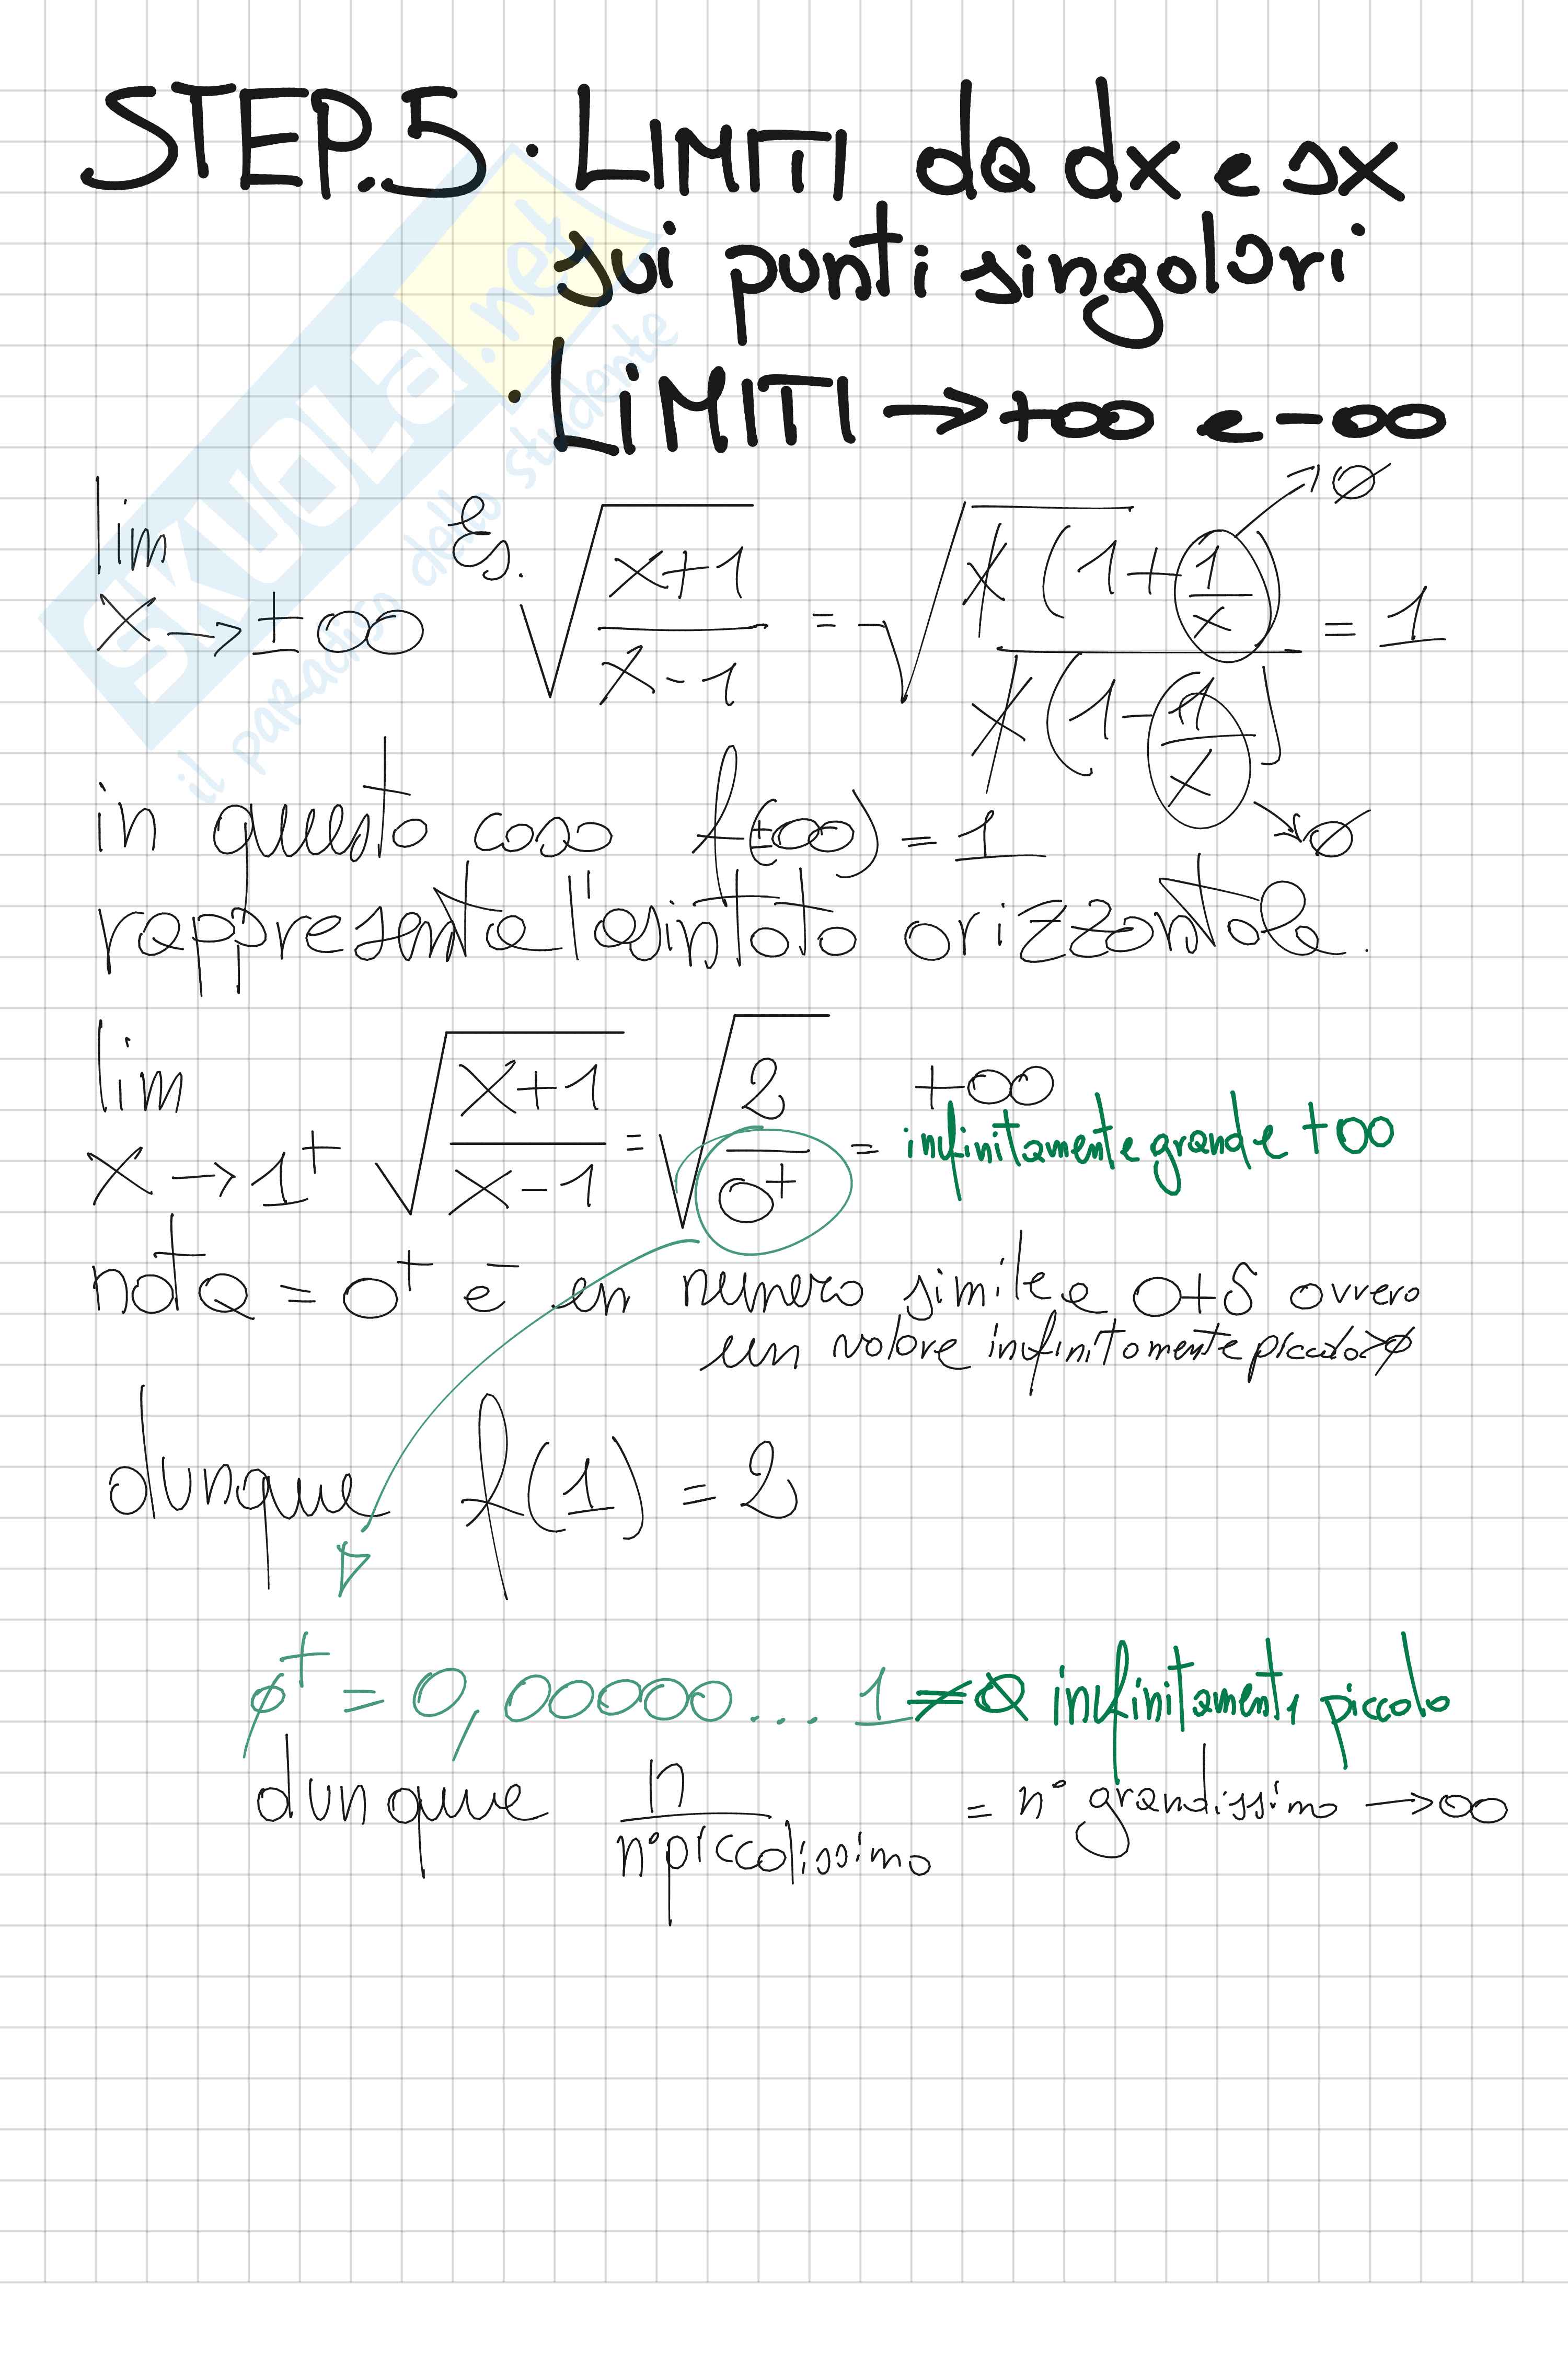 STEP.5 · LIMITI da dx e sx
sui punti singolari
· LIMITI → +∞ e -∞
lim x→±∞ Es. √((x+1)/(x-1)) = √(x(1+(1/x))/x(1-(1/x))) = 1
→ ∅
→ ∅
in questo caso f(±∞) = 1
rappresenta l'asintoto orizzontale.
lim x→1⁺ √((x+1)/(x-1)) = √(2/0⁺) = +∞
infinitamente grande +∞
nota = 0⁺ è un numero simile a 0+δ ovvero
un valore infinitamente piccolo >∅
dunque f(1) = 2
∅⁺ = 0,00000... 1 ≠ 0 infinitament, piccolo
dunque n/n° piccolissimo = n° grandissimo → ∞
SKUOLA.net
il paradiso dello studente